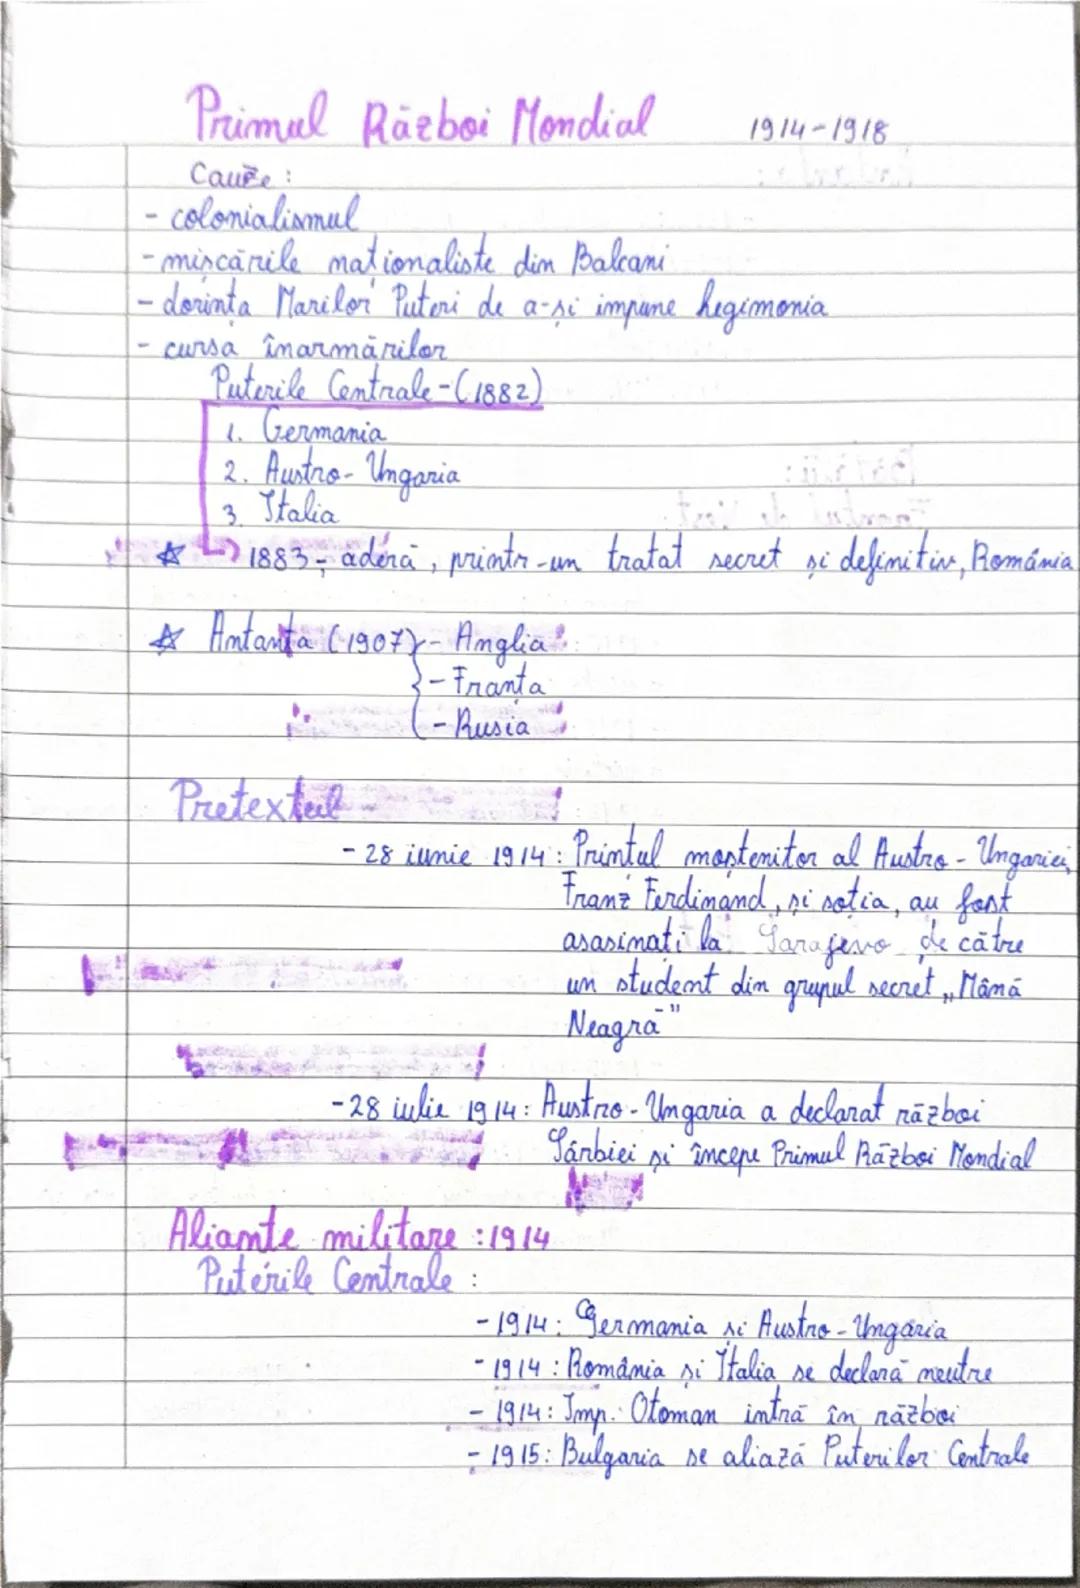 Primul Război Mondial 1914-1918
Cauze :
- colonialismul
- mișcările naționaliste din Balcani
- dorința Marilor Puteri de a-și impune hegimonia
- cursa înarmărilor
Puterile Centrale - (1882)
1. Germania
2. Austro-Ungaria
3. Italia
☆ → 1883 - aderă, printr-un tratat secret și definitiv, România
☆ Antanta (1907) - Anglia
- Franța
- Rusia
Pretextul
- 28 iunie 1914 : Prințul moștenitor al Austro-Ungariei,
Franz Ferdinand, și soția, au fost
asasinați la Sarajevo de către
un student din grupul secret „Mână
Neagră"
- 28 iulie 1914 : Austro-Ungaria a declarat război
Sârbiei și începe Primul Război Mondial
Aliante militare : 1914
Puterile Centrale :
- 1914 : Germania și Austro-Ungaria
- 1914 : România și Italia se declară neutre
- 1914 : Imp. Otoman intră în război
- 1915 : Bulgaria se aliază Puterilor Centrale